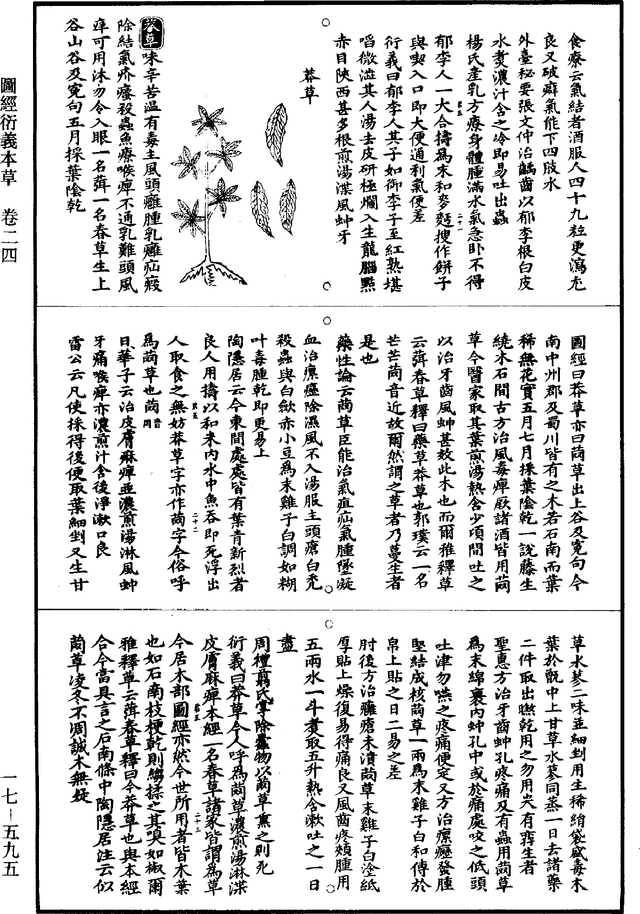 圖經衍義本草　卷二四
食療云氣結者酒服人四十九粒更瀉尤
良又破癖氣能下四肢水
外臺秘要張文仲治齲齒以郁李根白皮
水煑濃汁含之冷即易吐出蟲
楊氏產乳方療身體腫滿水氣急卧不得
郁李人一大合擣爲末和麥麪搜作餅子
與喫入口即大便通利氣便差
衍義曰郁李人其子如御李子至紅熟堪
啗微澁其人湯去皮研極爛入生龍腦點
赤目陝西甚多根煎湯渫風蚛牙
莽草
莽草味辛苦溫有毒主風頭癰腫乳癰疝瘕
除結氣疥瘙殺蟲魚療喉痹不通乳難頭風
癢可用沐勿令入眼一名葞一名春草生上
谷山谷及冤句五月採葉陰乾
圖經曰莽草亦曰䒽草出上谷及冤句今
南中州郡及蜀川皆有之木若石南而葉
稀無花實五月七月採葉陰乾一說藤生
繞木石間古方治風毒痺厥諸酒皆用䒽
草今醫家取其葉煎湯熱含少頃間吐之
以治牙齒風蚛甚效此木也而爾雅釋草
云葞春草釋曰藥草莽草也郭璞云一名
芒草䒽音近故爾然謂之草者乃蔓生者
是也
藥性論云䒽草臣能治氣疽疝氣腫墜凝
血治瘰癧除濕風不入湯服主頭瘡白禿
殺蟲與白歛赤小豆爲末雞子白調如糊
叶毒腫乾即更易上
陶隱居云今東間處處皆有葉青新烈者
良人用擣以和米内水中魚吞即死浮出
人取食之無妨莽草字亦作䒽字今俗呼
爲䒽草也䒽音罔
日華子云治皮膚麻痺並濃煎湯淋風蚛
牙痛喉痹亦濃煎汁含後淨漱口良
雷公云凡使採得後便取葉細剉又生甘
草水蓼二味並細剉用生稀絹袋盛毒木
葉於甑中上甘草水蓼同蒸一日去諸藥
二件取出㬠乾用之勿用尖有孿生者
聖惠方治牙齒蚛孔疼痛及有蟲用䒽草
爲末綿褁内蚛孔中或於痛處咬之低頭
吐津勿嚥之疼痛便定又方治瘰癧發腫
堅結成核䒽草一兩爲末雞子白和傅於
帛上貼之日二易之差
肘後方治癰瘡未潰䒽草末雞子白塗紙
厚貼上燥復易得痛良又風齒疼頰腫用
五兩水一斗煑取五升熱含漱吐之一日
盡
周禮翦氏掌除蠹物以䒽草熏之則死
衍義曰莽草今人呼爲䒽草濃煎湯淋渫
皮膚麻痺本經一名春草諸家皆謂爲草
今居木部圖經亦然今世所用者皆木葉
也如石南枝梗乾則縐揉之其嗅如椒爾
雅釋草云葞春草釋曰今莽草也與本經
合今當具言之石南條中陶隱居注云似
䒽草凌冬不凋誠木無疑
一七－五九五